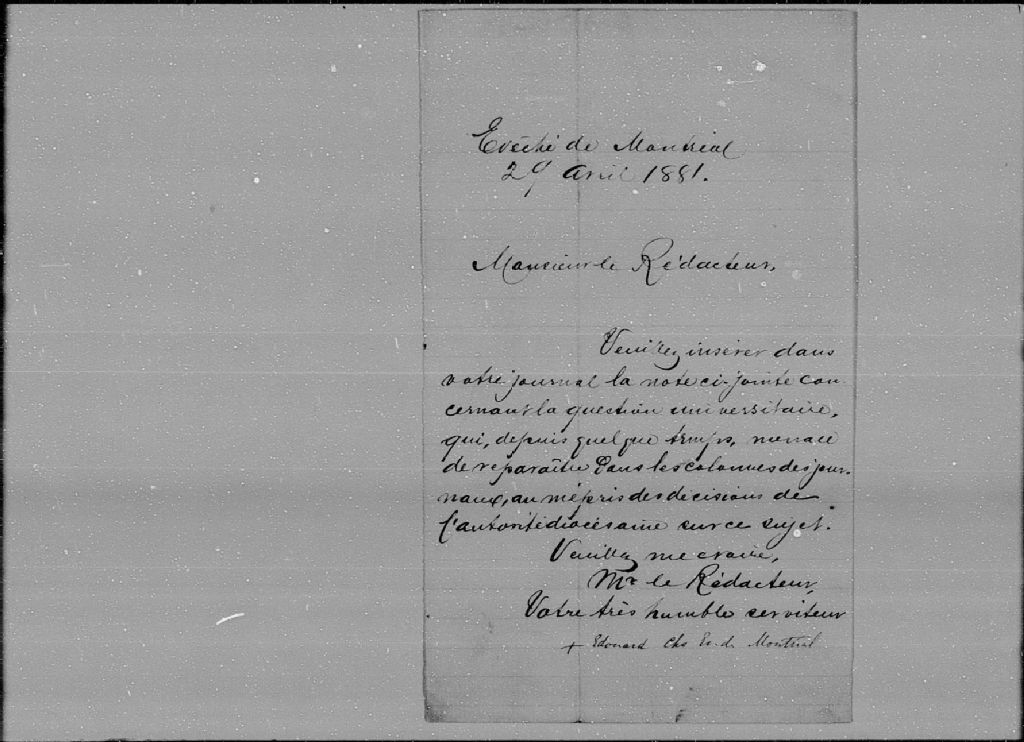 Evêché de Montréal
29 Avril 1881.
Monsieur le Rédacteur,
Veuillez insérer dans
votre journal la note ci-jointe con-
cernant la question universitaire,
qui, depuis quelque temps, menace
de reparaître dans les colonnes des jour-
naux, au mépris des décisions de
l'autorité diocésaine sur ce sujet.
Veuillez me croire,
Mr le Rédacteur,
Votre très humble serviteur
+ Edouard Chs Ev. de Montréal